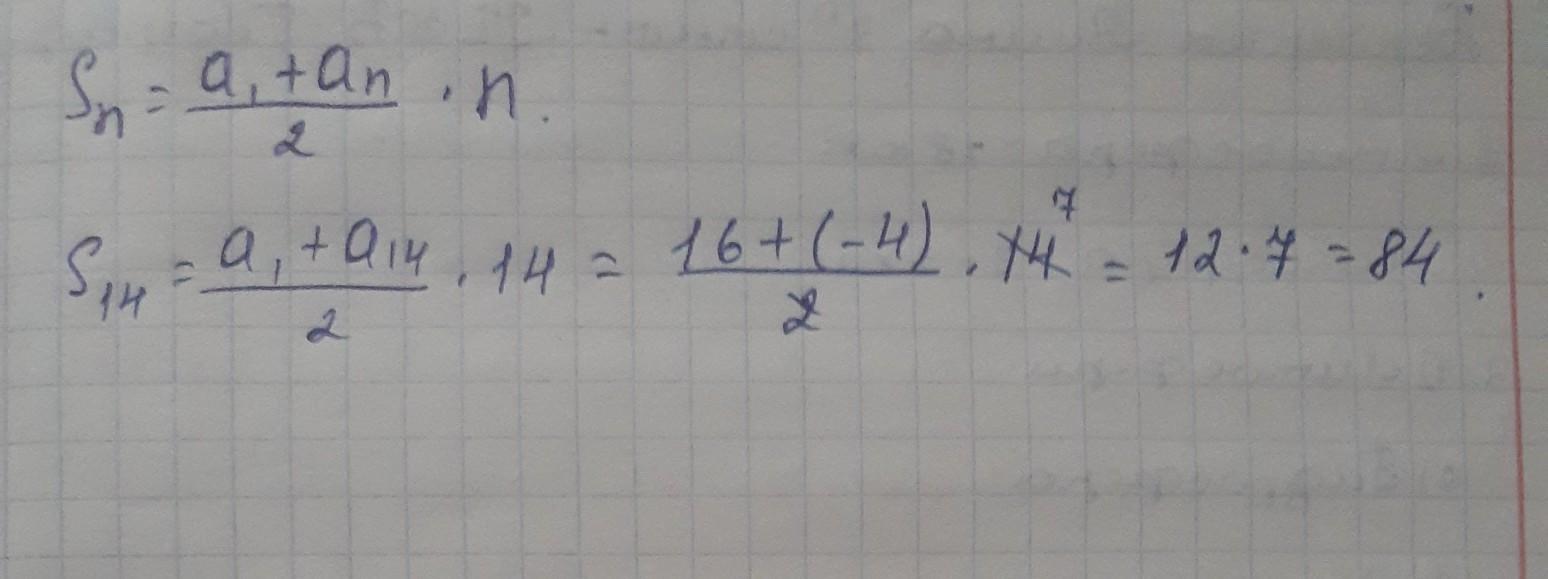 Sn = (a₁ + an)/2 · n.
S₁₄ = (a₁ + a₁₄)/2 · 14 = (16 + (-4))/2 · 14 7 = 12 · 7 = 84.